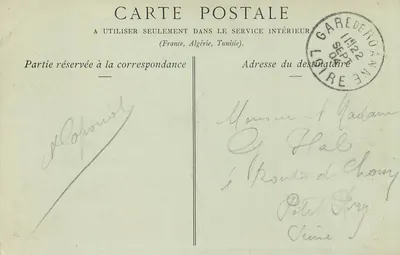 CARTE POSTALE
A UTILISER SEULEMENT DANS LE SERVICE INTÉRIEUR
(France, Algérie, Tunisie).
Partie réservée à la correspondance
Adresse du destinataire
GARE DE ROANNE
22
SEPT
LOIRE
Monsieur et Madame
Route de Choisy
Petit Ivry
Seine